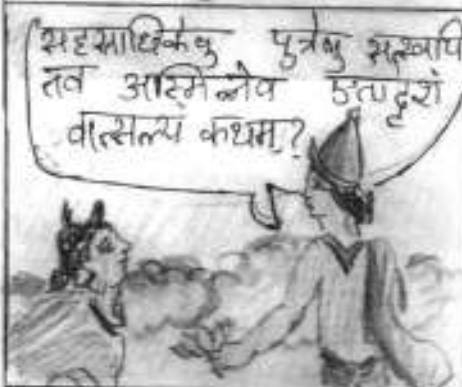 सहस्राधिकेषु पुत्रेषु सत्स्वपि
तव अस्मिन्नेव एतादृशं
वात्सल्यं कथम्?